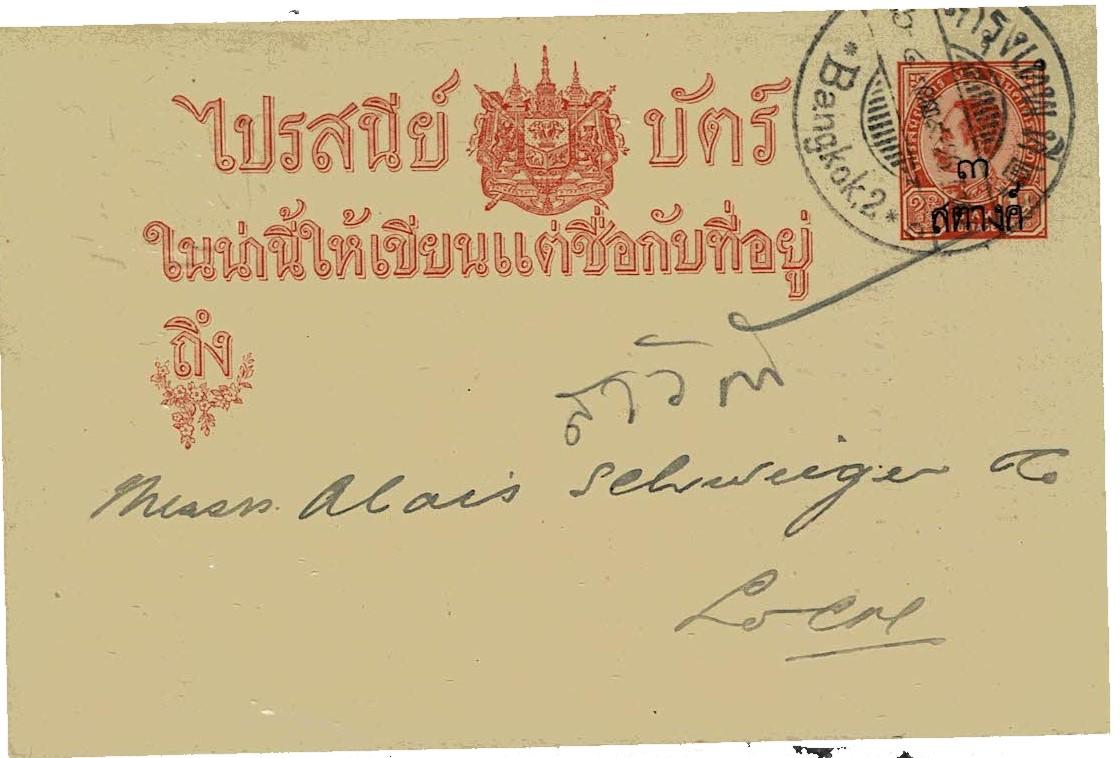 ไปรสนีย์ บัตร์
ในน่านี้ให้เขียนแต่ชื่อกับที่อยู่
ถึง
กรุงเทพฯ
*Bangkok.2.*
๓
สตางค์
Messrs. Alois Schweiger & Co
Local